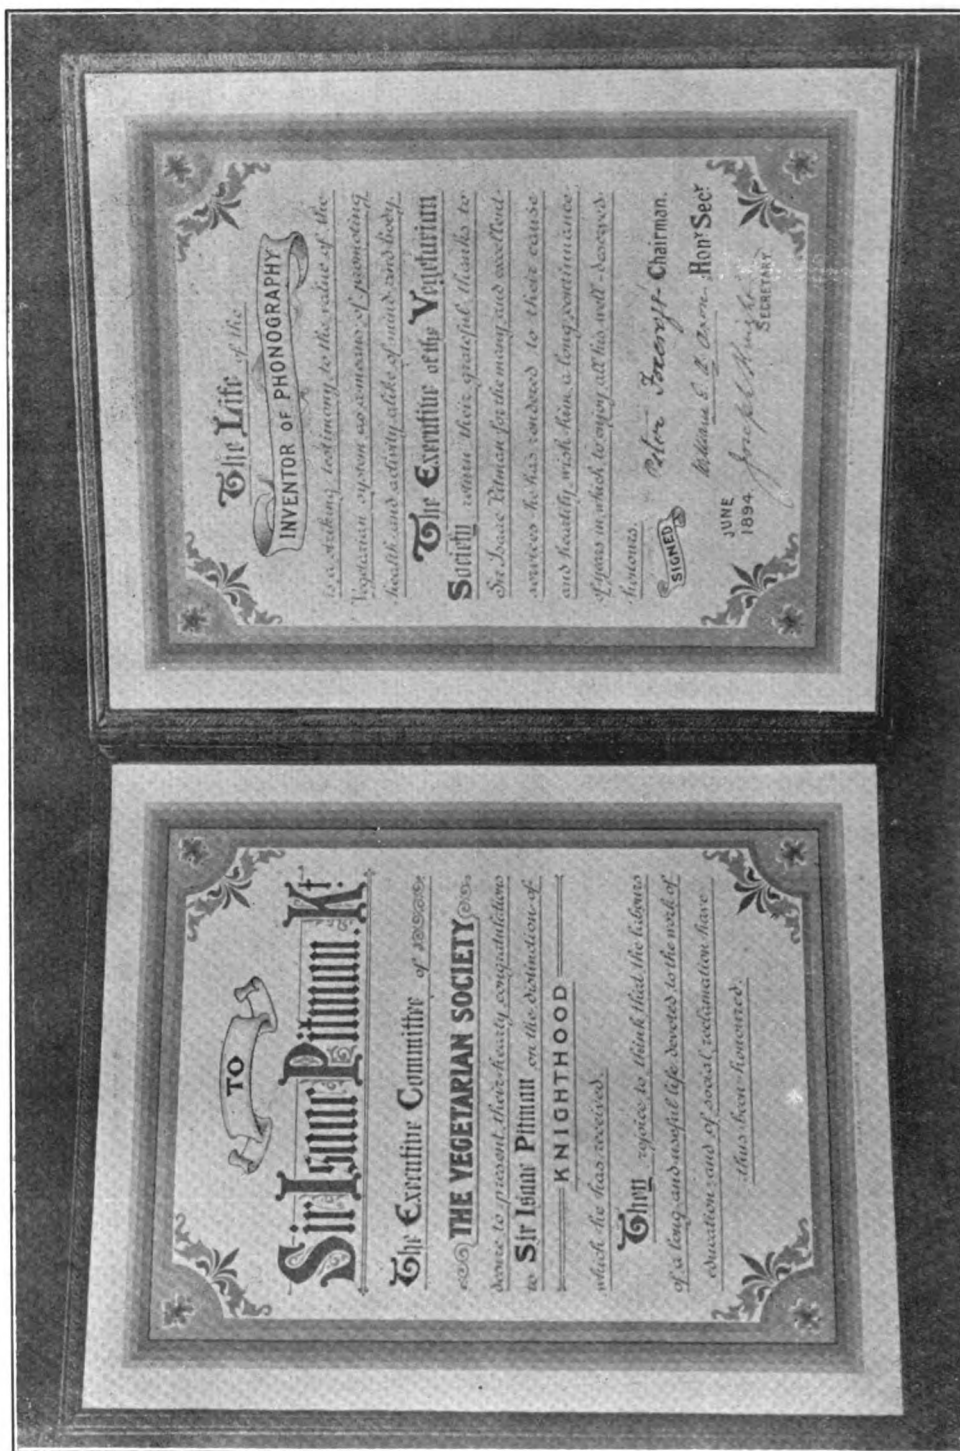 TO
Sir Isaac Pitman. Kt.
The Executive Committee of
THE VEGETARIAN SOCIETY
desire to present their hearty congratulations
to Sir Isaac Pitman on the distinction of
KNIGHTHOOD
which he has received.
They rejoice to think that the labours
of a long and useful life devoted to the work of
education and of social reclamation have
thus been honoured.
The Life of the
INVENTOR OF PHONOGRAPHY
is a striking testimony to the value of the
Vegetarian system as a means of promoting
health and activity alike of mind and body.
The Executive of the Vegetarian
Society return their grateful thanks to
Sir Isaac Pitman for the many and excellent
services he has rendered to their cause
and heartily wish him a long continuance
of years in which to enjoy all his well-deserved
honours.
SIGNED Peter Foxcroft - Chairman.
William E. A. Axon. Honʸ Secʳ
JUNE
1894. Joseph Knight
SECRETARY